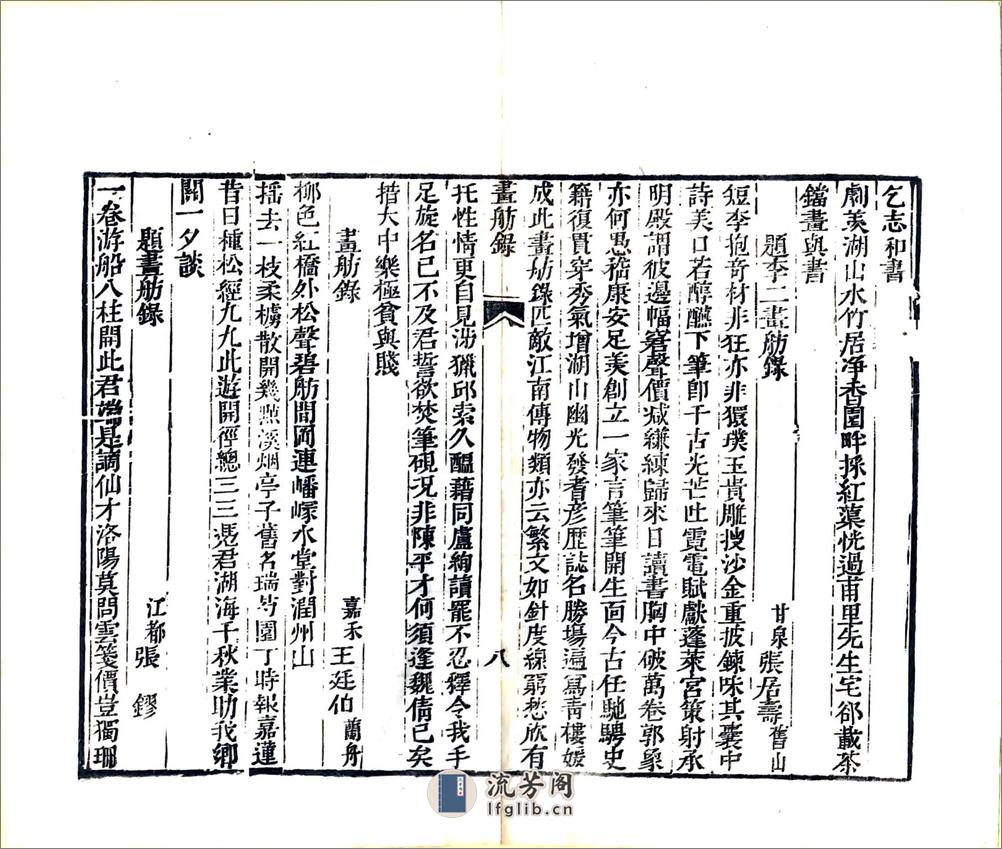 乞志和書
劇羨湖山水竹居淨香園畔採紅蕖恍過甫里先生宅卻載茶
鐺畫與書
題李二畫舫錄
甘泉張居壽舊山
短李抱奇材非狂亦非獧璞玉貴雕搜沙金重披鍊味其囊中
詩美口若醇醲下筆卽千古光芒吐霓電賦獻蓬萊宮策射承
明殿謂彼邊幅窘聲價减縑練歸來日讀書胸中破萬卷郭象
亦何愚嵇康安足羨創立一家言筆筆開生面今古任馳騁史
籍復貫穿秀氣增湖山幽光發耆彥歷誌名勝塲遍寫靑樓媛
成此畫舫錄匹敵江南傳物類亦云繁文如針度線窮愁欣有
畫舫錄
八
托性情更自見涉獵邱索久醞藉同盧絢讀罷不忍釋令我手
足旋名已不及君誓欲焚筆硯况非陳平才何須逢魏倩已矣
措大中樂極貧與賤
畫舫錄
嘉禾王廷伯蘭舟
柳色紅橋外松聲碧舫間岡連蟠嵏水堂對潤州山
揺去一枝柔櫓散開幾㸃溪烟亭子舊名瑞芍園丁時報嘉蓮
昔日種松經九九此遊開徑總三三慿君湖海千秋業助我鄉
關一夕談
題畫舫錄
江都張鏐
一卷游船八柱開此君端是謫仙才洛陽莫問雲箋價豈獨珊
流芳阁
lfglib.cn